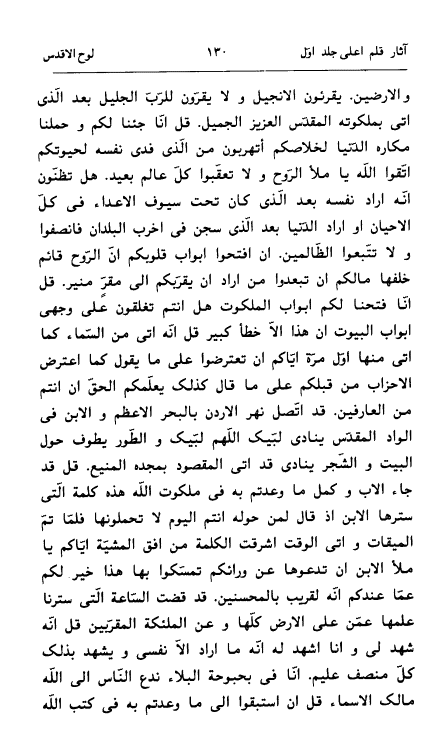 آثار قلم اعلی جلد اوّل ١٣٠ لوح الاقدس
و الارضین. یقرئون الانجیل و لا یقرّون للرّبّ الجلیل بعد الّذی
اتی بملکوته المقدّس العزیز الجمیل. قل انّا جئنا لکم و حملنا
مکاره الدّنیا لخلاصکم أتهربون من الّذی فدی نفسه لحیوتکم
اتّقوا اللّه یا ملأ الرّوح و لا تعقّبوا کلّ عالم بعید. هل تظنّون
انّه اراد نفسه بعد الّذی کان تحت سیوف الاعداء فی کلّ
الاحیان او اراد الدّنیا بعد الّذی سجن فی اخرب البلدان فانصفوا
و لا تتّبعوا الظّالمین. ان افتحوا ابواب قلوبکم انّ الرّوح قائم
خلفها مالکم ان تبعدوا من اراد ان یقرّبکم الی مقرّ منیر. قل
انّا فتحنا لکم ابواب الملکوت هل انتم تغلقون علی وجهی
ابواب البیوت ان هذا الاّ خطأ کبیر قل انّه اتی من السّماء کما
اتی منها اوّل مرّة ایّاکم ان تعترضوا علی ما یقول کما اعترض
الاحزاب من قبلکم علی ما قال کذلک یعلّمکم الحقّ ان انتم
من العارفین. قد اتّصل نهر الاردن بالبحر الاعظم و الابن فی
الواد المقدّس ینادی لبّیک اللّهم لبّیک و الطّور یطوف حول
البیت و الشّجر ینادی قد اتی المقصود بمجده المنیع. قل قد
جاء الاب و کمل ما وعدتم به فی ملکوت اللّه هذه کلمة الّتی
سترها الابن اذ قال لمن حوله انتم الیوم لا تحملونها فلمّا تمّ
المیقات و اتی الوقت اشرقت الکلمة من افق المشیّة ایّاکم یا
ملأ الابن ان تدعوها عن ورائکم تمسّکوا بها هذا خیر لکم
عمّا عندکم انّه لقریب بالمحسنین. قد قضت السّاعة الّتی سترنا
علمها عمّن علی الارض کلّها و عن الملئکة المقرّبین قل انّه
شهد لی و انا اشهد له انّه ما اراد الاّ نفسی و یشهد بذلک
کلّ منصف علیم. انّا فی بحبوحة البلاء ندع النّاس الی اللّه
مالک الاسماء قل ان استبقوا الی ما وعدتم به فی کتب اللّه